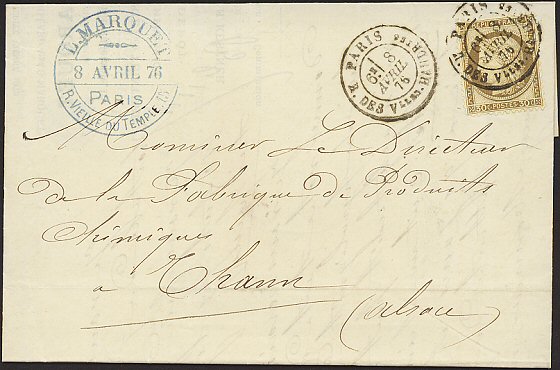 L. MARQUET
8 AVRIL 76
PARIS
R. VIEILLE DU TEMPLE
PARIS
6E
8
AVRIL
76
R. DES Vlles HAUDtes
PARIS
AVRIL
76
R. DES Vlles
30C POSTES 30C
Monsieur Le Directeur
de la Fabrique de Produits
chimiques
à Thann
(Alsace)